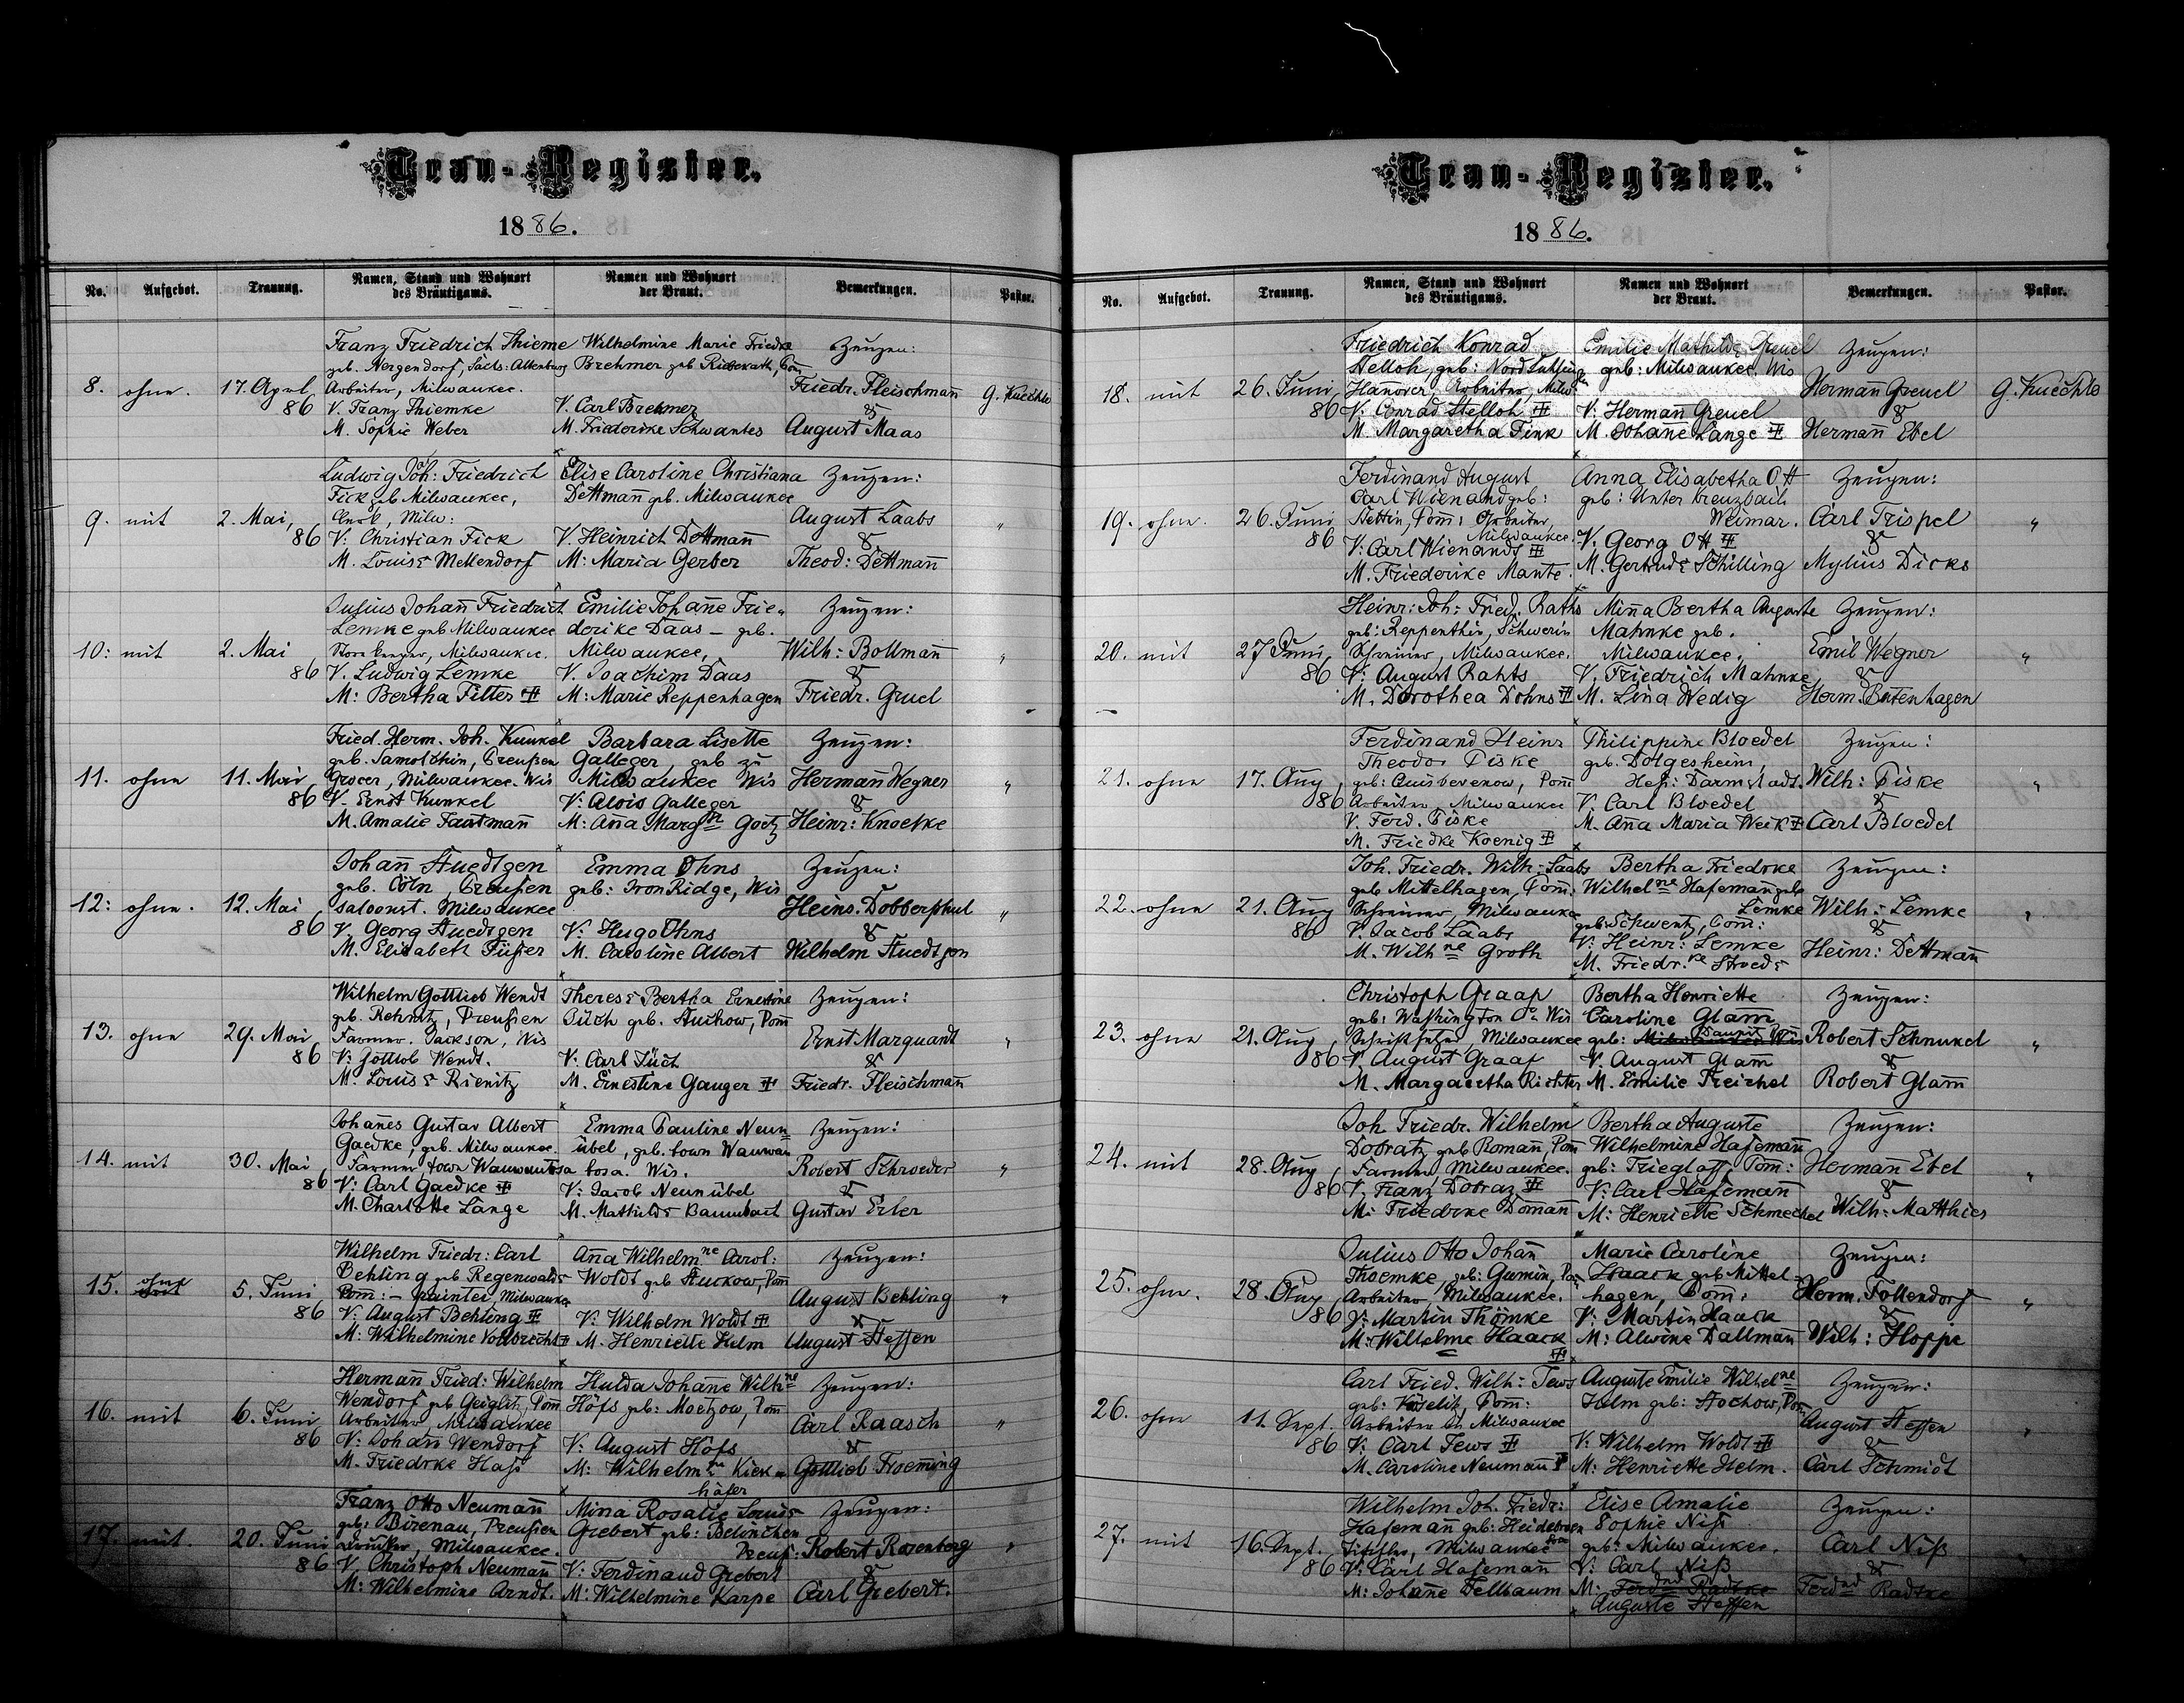 Trau-Register.
1886.
No. Aufgebot. Trauung. Namen, Stand und Wohnort des Bräutigams. Namen und Wohnort der Braut. Bemerkungen. Pastor.
Franz Friedrich Thieme Wilhelmine Marie Friedke Zeugen:
geb. Hergendorf, Sachs: Altenburg Brehmer geb
8. ohne. 17. April Arbeiter, Milwaukee. Friedr. Fleischmañ G. Kuechle
86 V. Franz Thiemke V. Carl Brehmer &
M. Sophie Weber M. Friedericke Schwantes August Maas
Ludwig Joh: Friedrich Elise Caroline Christiana Zeugen:
Fick geb Milwaukee, Dettmañ geb. Milwaukee
9. mit 2. Mai, Clerk, Milw: August Laabs "
86 V: Christian Fick V. Heinrich Dettmañ &
M. Louise Mellendorf M: Maria Gerber Theod: Dettmañ
Julius Johañ Friedrich Emilie Johañe Frie- Zeugen:
Lemke geb Milwaukee derike Daas – geb.
10: mit 2. Mai Milwaukee. Milwaukee, Wilh: Bollmañ "
86 V. Ludwig Lemke V. Joachim Daas &
M: Bertha Filter M: Marie Reppenhagen Friedr. Gruel
Fried. Herm. Joh. Kunkel Barbara Lisette Zeugen:
geb. Samotschin, Preußen Galleger, geb zu
11. ohne 11. Mai Grocer, Milwaukee. Wis Milwaukee Wis Hermañ Wegner "
86 V. Ernst Kunkel V: Alois Galleger &
M. Amalie Fautmañ M: Aña Margth Goetz Heinr: Knoelke
Johañ Stuedtgen Emma Ohns Zeugen:
geb. Cöln, Preußen geb: Iron Ridge, Wis
12: ohne. 12. Mai saloonist. Milwaukee Heinr. Dobberphul "
86 V. Georg Stuedtgen V: Hugo Ohns &
M. Elisabeth Füßer M. Caroline Albert Wilhelm Stuedtgen
Wilhelm Gottlieb Wendt Therese Bertha Ernestine Zeugen:
geb. Rehnitz, Preußen Püch geb. Stuchow, Pom
13. ohne 29. Mai Farmer. Jackson, Wis Ernst Marquant "
86 V: Gottlob Wendt. V: Carl &
M. Louise Rienitz M. Ernestine Gauger Friedr. Fleischmañ
Johañes Gustav Albert Emma Pauline Neun= Zeugen:
Gaedke, geb. Milwaukee. übel, geb. town Wauwau
14. mit 30. Mai Farmer, town Wauwautosa tosa. Wis. Robert Schroeder "
86 V: Carl Gaedke V: Jacob Neunübel &
M. Charlotte Lange M. Mathilde Baumbach Gustav Erler
Wilhelm Friedr: Carl Aña Wilhelmne Carol: Zeugen:
Behling geb Regenwalde Woldt geb Stuckow, Pom
15. ohne 5. Juni Pom: – painter, Milwaukee August Behling "
86 V: August Behling V: Wilhelm Woldt &
M: Wilhelmine Vollbrecht M. Henriette Helm August Steffen
Hermañ Fried: Wilhelm Hulda Johañe Wilhne Zeugen:
Wendorf geb Geiglitz, Pom Höfs geb: Moetzow, Pom
16. mit 6. Juni Arbeiter Milwaukee Carl Raasch "
86 V: Johañ Wendorf V: August Höfs &
M. Friedrke Hafs M: Wilhelmne Kiek- Gottlieb Froeming
häfer
Franz Otto Neumañ Mina Rosalie Louise Zeugen:
geb: Birenau, Preußen Grebert geb: Belinchen
17. mit. 20. Juni Drucker, Milwaukee. Preuß: Robert Rosenberg "
86 V Christoph Neumañ V: Ferdinand Grebert &
M: Wilhelmine Arndt. M: Wilhelmine Karpe Carl Grebert.
Trau-Register.
1886.
No. Aufgebot. Trauung. Namen, Stand und Wohnort des Bräutigams. Namen und Wohnort der Braut. Bemerkungen. Pastor.
Friedrich Konrad Emilie Mathilde Greuel Zeugen:
Stelloh, geb: geb: Milwaukee, Wis
18. mit 26. Juni, Hañover, Arbeiter, Milw Hermañ Greuel G. Kuechle
86 V: Conrad Stelloh V: Hermañ Greuel &
M. Margaretha Fink M. Johañe Lange Hermañ Ebel
Ferdinand August Anna Elisabetha Ott Zeugen:
Carl Wienand geb: geb: Unterbreuzbach
19. ohne. 26. Juni Stettin, Pom: Arbeiter, Weimar. Carl Trispel "
86 Milwaukee. V: Georg Ott &
V: Carl Wienands M. Gertrude Schilling Mylius Dicks
M. Friederike Mante.
Heinr: Joh: Fried. Raths Miña Bertha Auguste Zeugen:
geb: Reppenthin, Schwerin Mahnke geb.
20. mit 27 Juni, Schreiner, Milwaukee. Milwaukee. Emil Wegner "
86 V: August Rahts V. Friedrich Mahnke &
M. Dorothea Dohns M. Lena Wedig Herm. Butenhagen
Ferdinand Heinr Philippine Bloedel Zeugen:
Theodor Piske geb. Dolgesheim,
21. ohne 17. Aug, geb: Quisbevenow, Pom Heß: Darmstadt. Wilh: Piske "
86 Arbeiter, Milwaukee V. Carl Bloedel &
V. Ferd. Piske M. Aña Maria Weik Carl Bloedel
M. Friedke Koenig
Joh. Friedr. Wilh: Laabs Bertha Friedrke Zeugen:
geb Mittelhagen, Pom: Wilhelne Hafemañ geb
22. ohne 21. Aug Schreiner, Milwaukee Lemke Wilh: Lemke "
86 V. Jacob Laabs geb: Schwentz, Pom: &
M. Wilhne Groth V: Heinr: Lemke Heinr: Dettmañ
M. Friedr.ke Stroede
Christoph Graap Bertha Henriette Zeugen:
geb: Washington Co Wis Caroline Glam
23. ohne 21. Aug, Schriftsetzer, Milwaukee geb: Wis Robert Schnukel "
86 V August Graap V. August Glam &
M. Margaretha Richter M. Emilie Treichel Robert Glam
Joh. Friedr. Wilhelm Bertha Auguste Zeugen:
Dobratz geb Romañ, Pom Wilhelmine Hafemañ
24. mit 28. Aug, Farmer, Milwaukee. geb: Trieglaff, Pom: Hermañ Ebel "
86 V. Franz Dobraz V: Carl Hafemañ &
M: Friedrke Domañ M: Henriette Schmechel Wilh: Matthies
Julius Otto Johañ Marie Caroline Zeugen:
Thoemke, geb: Gumin, Pom Haack geb Mittel-
25. ohne. 28. Aug, Arbeiter Milwaukee. hagen, Pom: Herm. Follendorf "
86 V: Martin Thömke V: Martin Haack &
M: Wilhelme Haack M: Alwine Dallmañ Wilh: Hoppe
Carl Fried. Wilh: Tews Auguste Emilie Wilhelne Zeugen:
geb: Pom: Helm geb: Stochow, Pom
26. ohne 11. Sept. Arbeiter in Milwaukee August Steffen "
86 V: Carl Tews V: Wilhelm Woldt &
M. Caroline Neumañ M: Henriette Helm. Carl Schmidt
Wilhelm Joh. Friedr: Elise Amalie Zeugen:
Hafemañ geb: Heidebreck Sophie Niß
27. mit 16. Sept. Tischler, Milwaukee geb: Milwaukee. Carl Niß "
86 V: Carl Hafemañ V: Carl Niß &
M: Johañe Fellbaum M: Ferdnd Radtke Ferdnd Radtke
Auguste Steffen